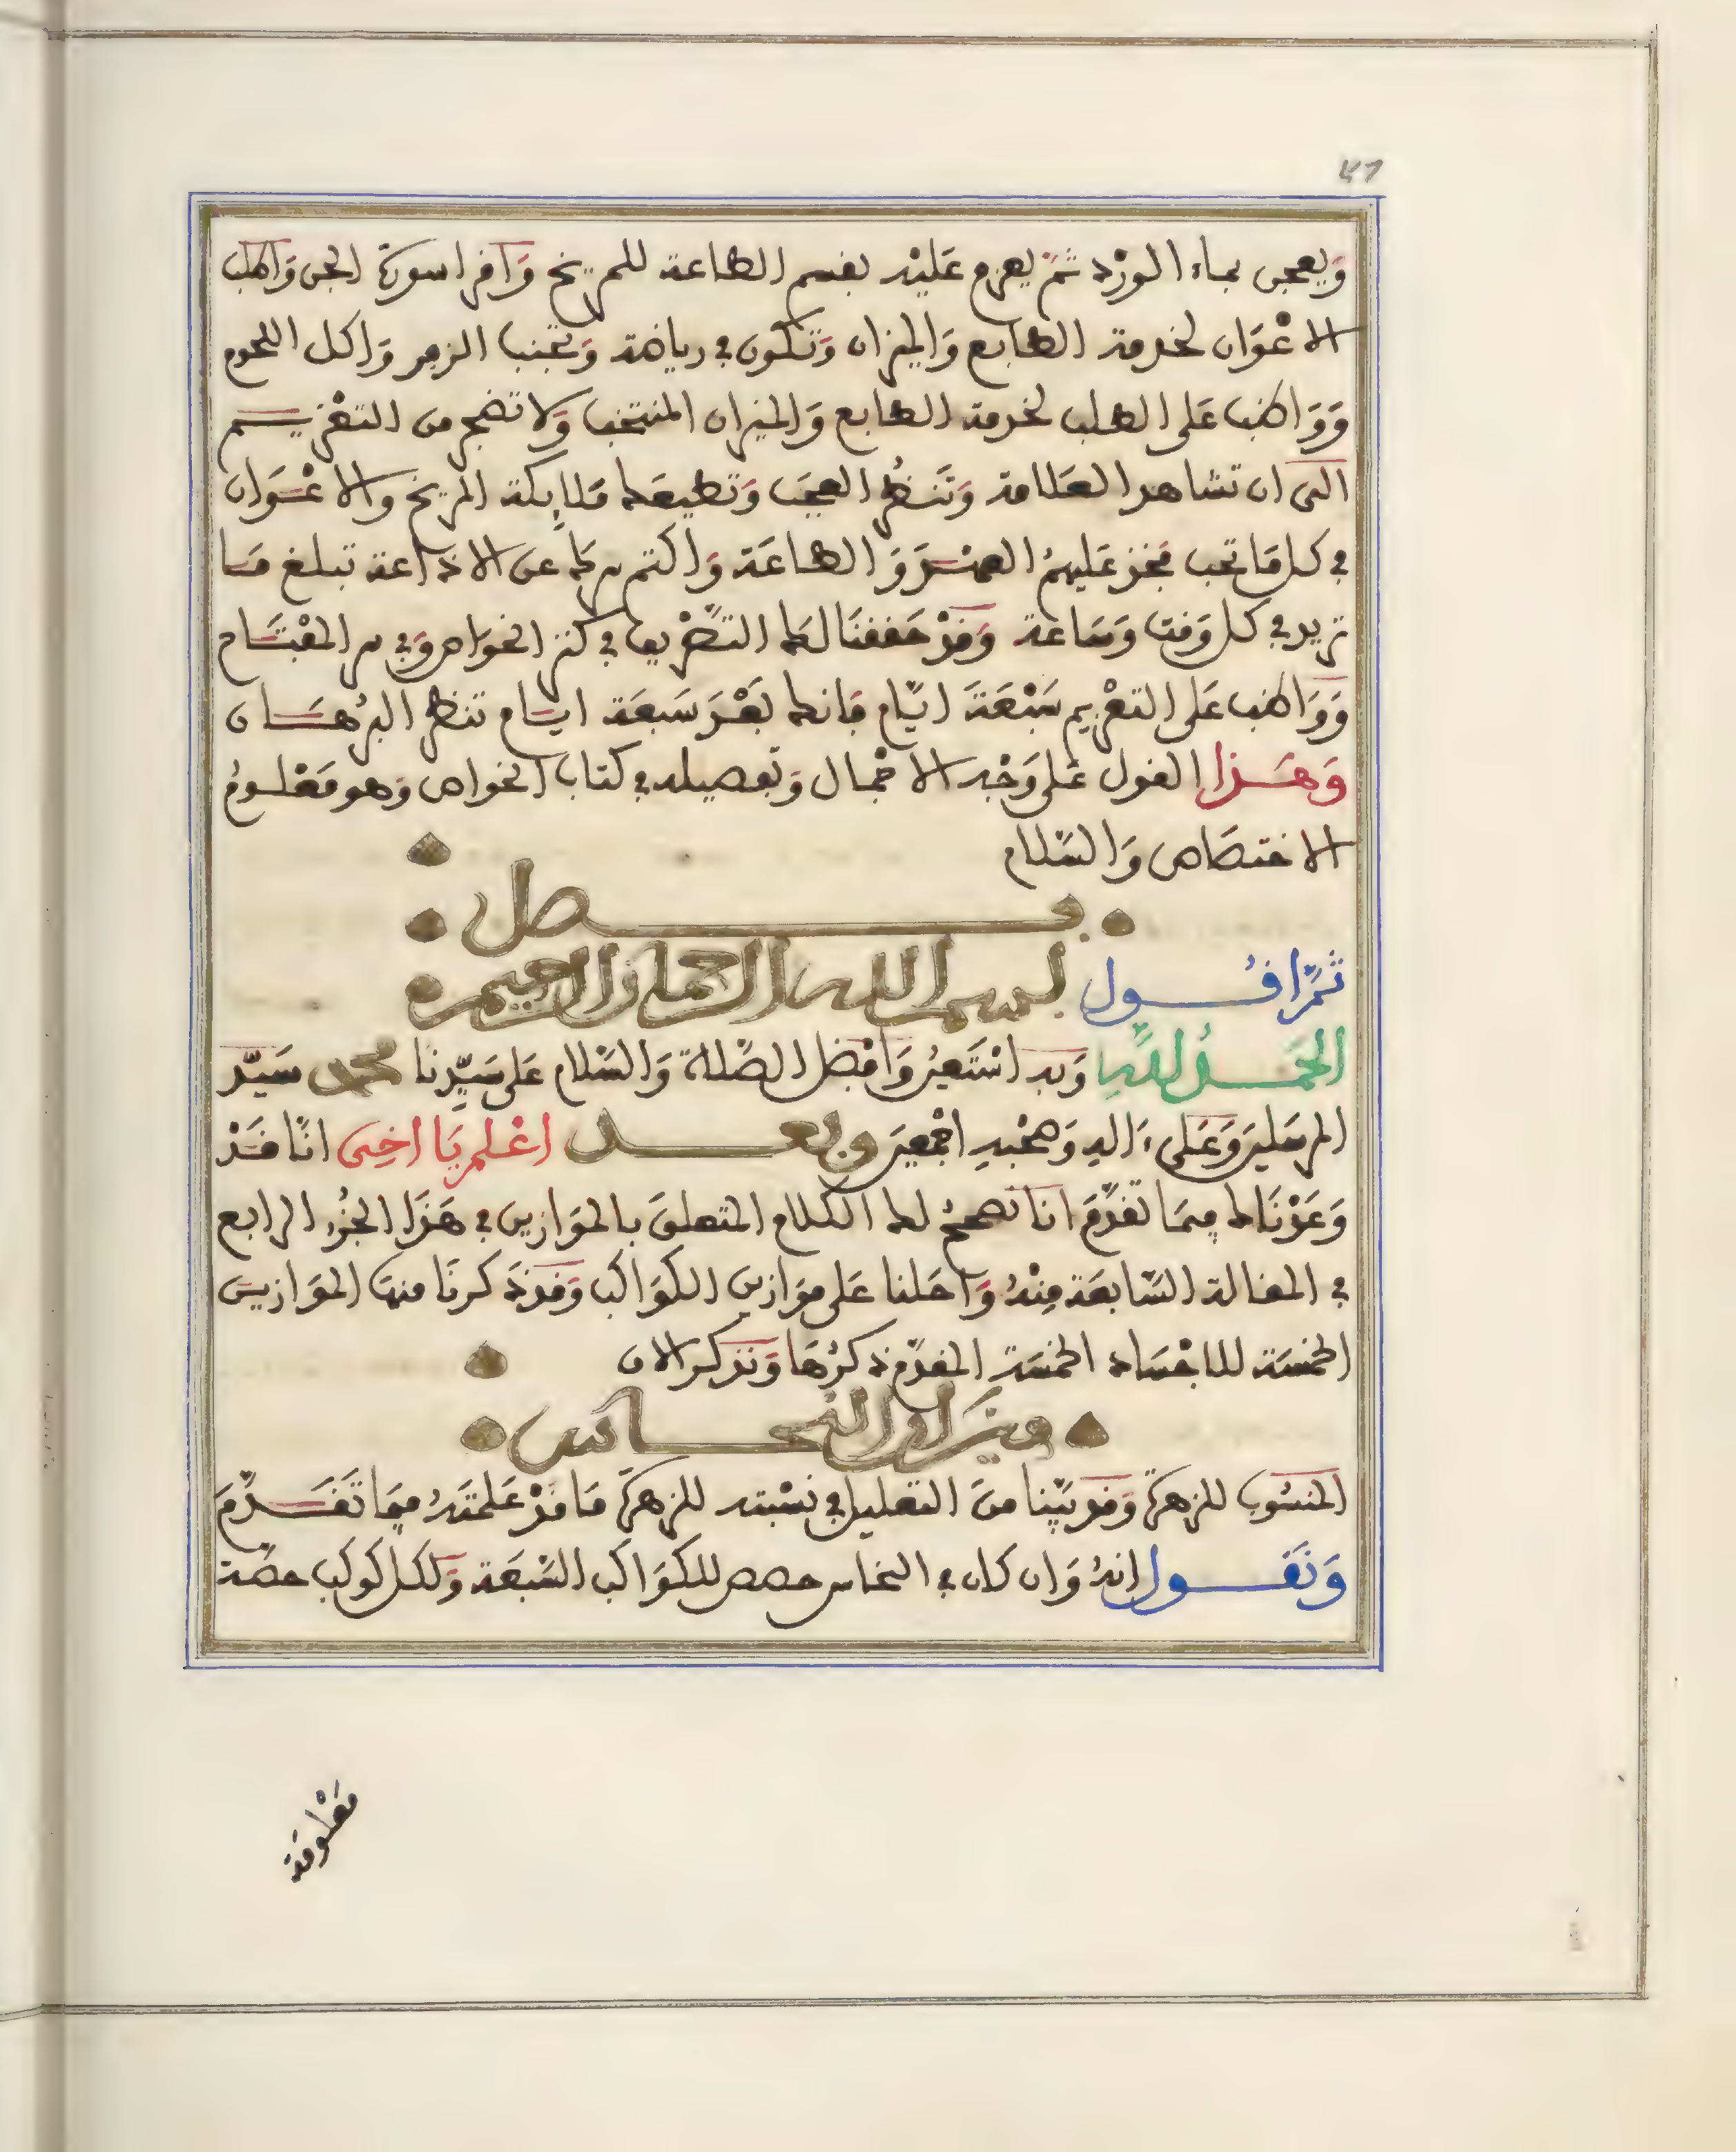 ٤٦
وَيعجن بماء الورْد ثمّ يعزم عَليْه بقسم الطاعة للمريخ وَاقرا سورة الجن وَاطلب
الاعْوَان لخدمة الطابع وَالميزان وَتكون في رياضة وَتجنب الزفر وَاكل اللحوم
وَوَاظب عَلى الطلب لخدمة الطابع وَالميزان المنتخب وَلا تضجر من التعْزيم
الى ان تشاهد العَلامة وَتَنظُر العجَب وَتطيعَك مَلايكة المريخ والاعْوَان
في كل مَا تحب فخذ عَليهمُ العهْدَ وَالطاعَة وَاكتم سرك عن الاذاعة تبلغ مَا
تريد في كل وَقت وَسَاعة وَقدْ حَققنَا لك التصْريف في كنز الخوَاص وَفي سر المفتَاح
وَوَاظب عَلى التعْزيم سَبْعَةَ ايّام فَانك بَعْدَ سَبعَة ايام تنظر البرُهَان
وَهَذا القول عَلى وَجْه الاجْمال وَتفصيله في كتاب الخواص وَهو مَعْلومُ
الاختصَاص وَالسّلام
فصل
ثمَّ اقول بسم الله الرحمان الرحيم
الحَمدُ للّهِ وَبه اسْتَعينُ وَافْضَل الصّلاة وَالسّلام عَلى سَيّدِنا محمد سَيّد
المرسَلينَ وَعَلى ءَالِه وَصَحْبِهِ اجْمعينَ وبعد اعْلم يَا اخِى انّا قَدْ
وَعَدْنَاك فِيمَا تقدَّمَ انا نصححُ لك الكلام المتعلقَ بالموَازين في هَذَا الجُزْء الرابع
في المقالة السّابعَة مِنْهُ وَاحَلنا عَلى موَازين الكوَاكب وَقد ذَكرنَا منهَا الموَازين
الخمسَة للاجْسَاد الخمسَة المقدّم ذكرُهَا وَنذكر الان
ميزان النحاس
المنسُوب للزهرَة وَقد بَيّنا منَ التعليل في نسْبته للزهرَة مَا قدْ عَلمتَهُ فيمَا تَقَدَّمَ
وَنَقول انهُ وَان كان في النحاس حصص للكوَاكب السّبعَة وَلكل كوكب حصّة
مَعْلومَة